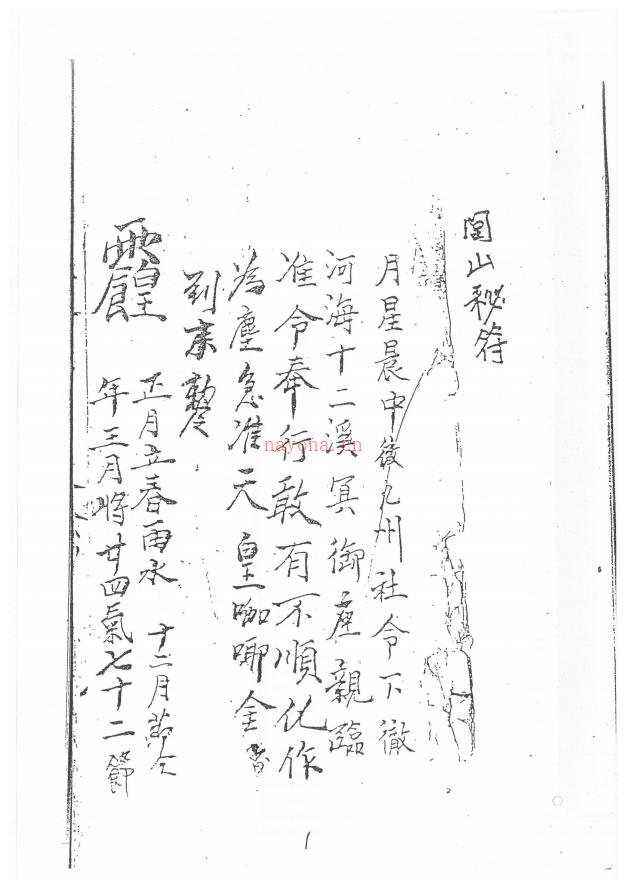 閭山秘符
月星晨中後九州社令下徹
河海十二溪冥御座親臨
准令奉行敢有不順化作
為塵急准天皇咖唧金
到奉
正月立春雨水 十二月節令
年三月將廿四氣七十二節
nayona.cn
1